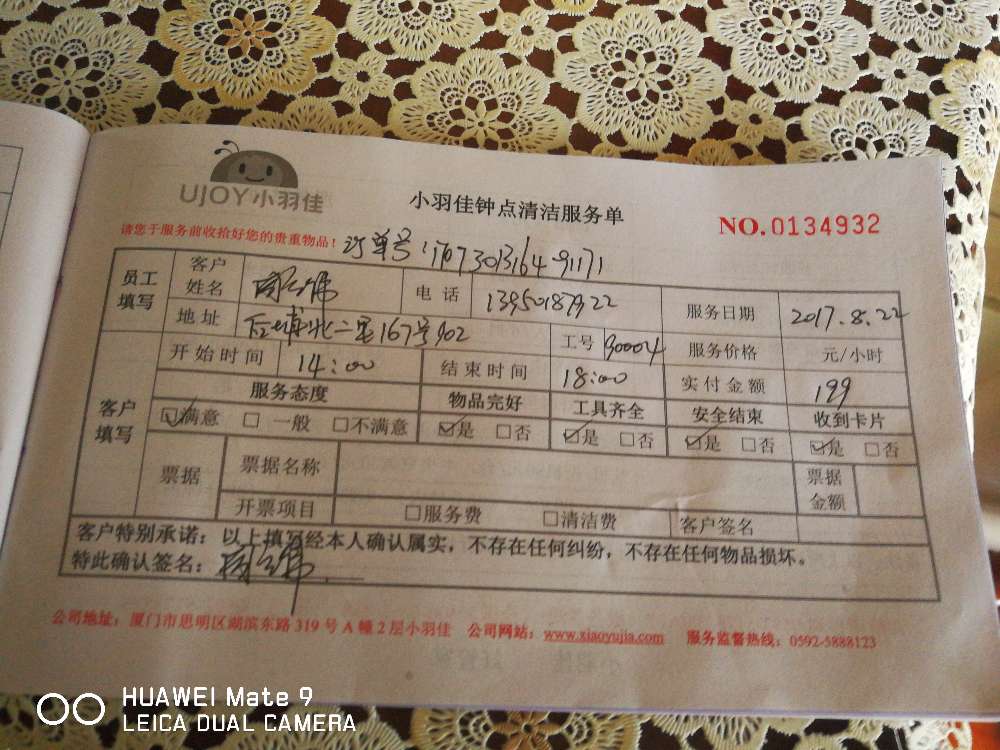 UJOY小羽佳
小羽佳钟点清洁服务单
NO.0134932
请您于服务前收拾好您的贵重物品！
订单号:1707301316491171
员工填写
客户姓名
电话 13950187922
服务日期 2017.8.22
地址 后埔北二里167号902
工号 90004
服务价格 元/小时
客户填写
开始时间 14:00
结束时间 18:00
实付金额 199
服务态度 物品完好 工具齐全 安全结束 收到卡片
☑满意 □一般 □不满意 ☑是 □否 ☑是 □否 ☑是 □否 ☑是 □否
票据
票据名称
票据金额
开票项目 □服务费 □清洁费 客户签名
客户特别承诺：以上填写经本人确认属实，不存在任何纠纷，不存在任何物品损坏。
特此确认签名：
公司地址：厦门市思明区湖滨东路319号A幢2层小羽佳 公司网站：www.xiaoyujia.com 服务监督热线：0592-5888123
HUAWEI Mate 9
LEICA DUAL CAMERA